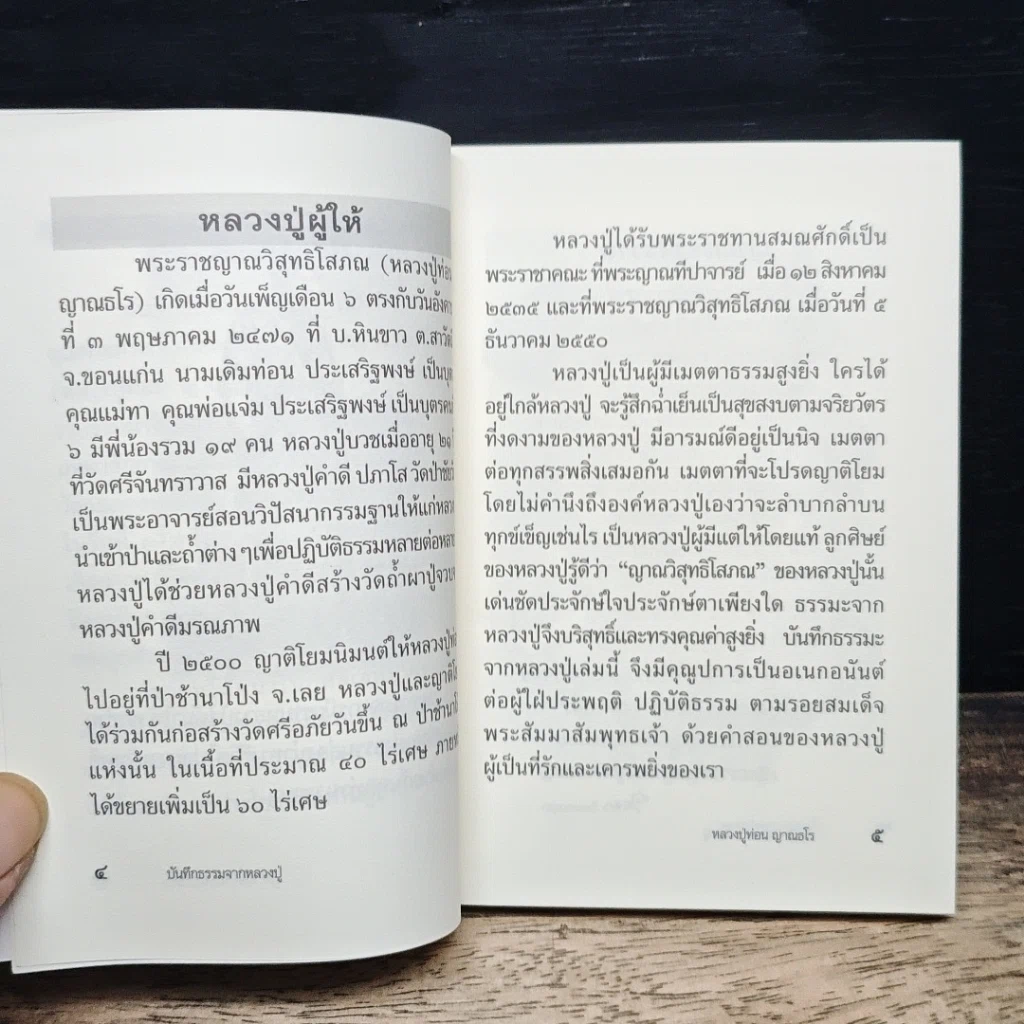 หลวงปู่ผู้ให้
พระราชญาณวิสุทธิโสภณ (หลวงปู่ท่อน
ญาณธโร) เกิดเมื่อวันเพ็ญเดือน ๖ ตรงกับวันอังคาร
ที่ ๓ พฤษภาคม ๒๔๗๑ ที่ บ.หินขาว ต.สาวัตถี
จ.ขอนแก่น นามเดิมท่อน ประเสริฐพงษ์ เป็น
คุณแม่ทา คุณพ่อแจ่ม ประเสริฐพงษ์ เป็นบุตรคน
๖ มีพี่น้องรวม ๑๙ คน หลวงปู่บวชเมื่ออายุ ๒๑
ที่วัดศรีจันทราวาส มีหลวงปู่คำดี ปภาโส
เป็นพระอาจารย์สอนวิปัสนากรรมฐานให้แก่
นำเข้าป่าและถ้ำต่าง ๆเพื่อปฏิบัติธรรมหลายต่อ
หลวงปู่ได้ช่วยหลวงปู่คำดีสร้างวัดถ้ำผาปู่
หลวงปู่คำดีมรณภาพ
ปี ๒๕๐๐ ญาติโยมนิมนต์ให้หลวงปู่
ไปอยู่ที่ป่าช้านาโป่ง จ.เลย หลวงปู่และ
ได้ร่วมกันก่อสร้างวัดศรีอภัยวันขึ้น ณ
แห่งนั้น ในเนื้อที่ประมาณ ๔๐ ไร่เศษ
ได้ขยายเพิ่มเป็น ๖๐ ไร่เศษ
๔ บันทึกธรรมจากหลวงปู่
หลวงปู่ได้รับพระราชทานสมณศักดิ์เป็น
พระราชาคณะ ที่พระญาณทีปาจารย์ เมื่อ ๑๒ สิงหาคม
๒๕๓๕ และที่พระราชญาณวิสุทธิโสภณ เมื่อวันที่ ๕
ธันวาคม ๒๕๕๐
หลวงปู่เป็นผู้มีเมตตาธรรมสูงยิ่ง ใครได้
อยู่ใกล้หลวงปู่ จะรู้สึกฉ่ำเย็นเป็นสุขสงบตามจริยวัตร
ที่งดงามของหลวงปู่ มีอารมณ์ดีอยู่เป็นนิจ เมตตา
ต่อทุกสรรพสิ่งเสมอกัน เมตตาที่จะโปรดญาติโยม
โดยไม่คำนึงถึงองค์หลวงปู่เองว่าจะลำบากลำบน
ทุกข์เข็ญเช่นไร เป็นหลวงปู่ผู้มีแต่ให้โดยแท้ ลูกศิษย์
ของหลวงปู่รู้ดีว่า “ญาณวิสุทธิโสภณ” ของหลวงปู่นั้น
เด่นชัดประจักษ์ใจประจักษ์ตาเพียงใด ธรรมะจาก
หลวงปู่จึงบริสุทธิ์และทรงคุณค่าสูงยิ่ง บันทึกธรรมะ
จากหลวงปู่เล่มนี้ จึงมีคุณูปการเป็นอเนกอนันต์
ต่อผู้ใฝ่ประพฤติ ปฏิบัติธรรม ตามรอยสมเด็จ
พระสัมมาสัมพุทธเจ้า ด้วยคำสอนของหลวงปู่
ผู้เป็นที่รักและเคารพยิ่งของเรา
หลวงปู่ท่อน ญาณธโร ๕